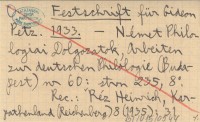 Festschrift für Gideon
Petz. 1933. - Német Philo-
logiai Dolgozatok, Arbeiten
zur deutschen Philologie (Buda-
pest) nr 60: 235, 8°
Rec.: Réz Heinrich, Kar-
pathenland (Reichenberg) 8 (1935):